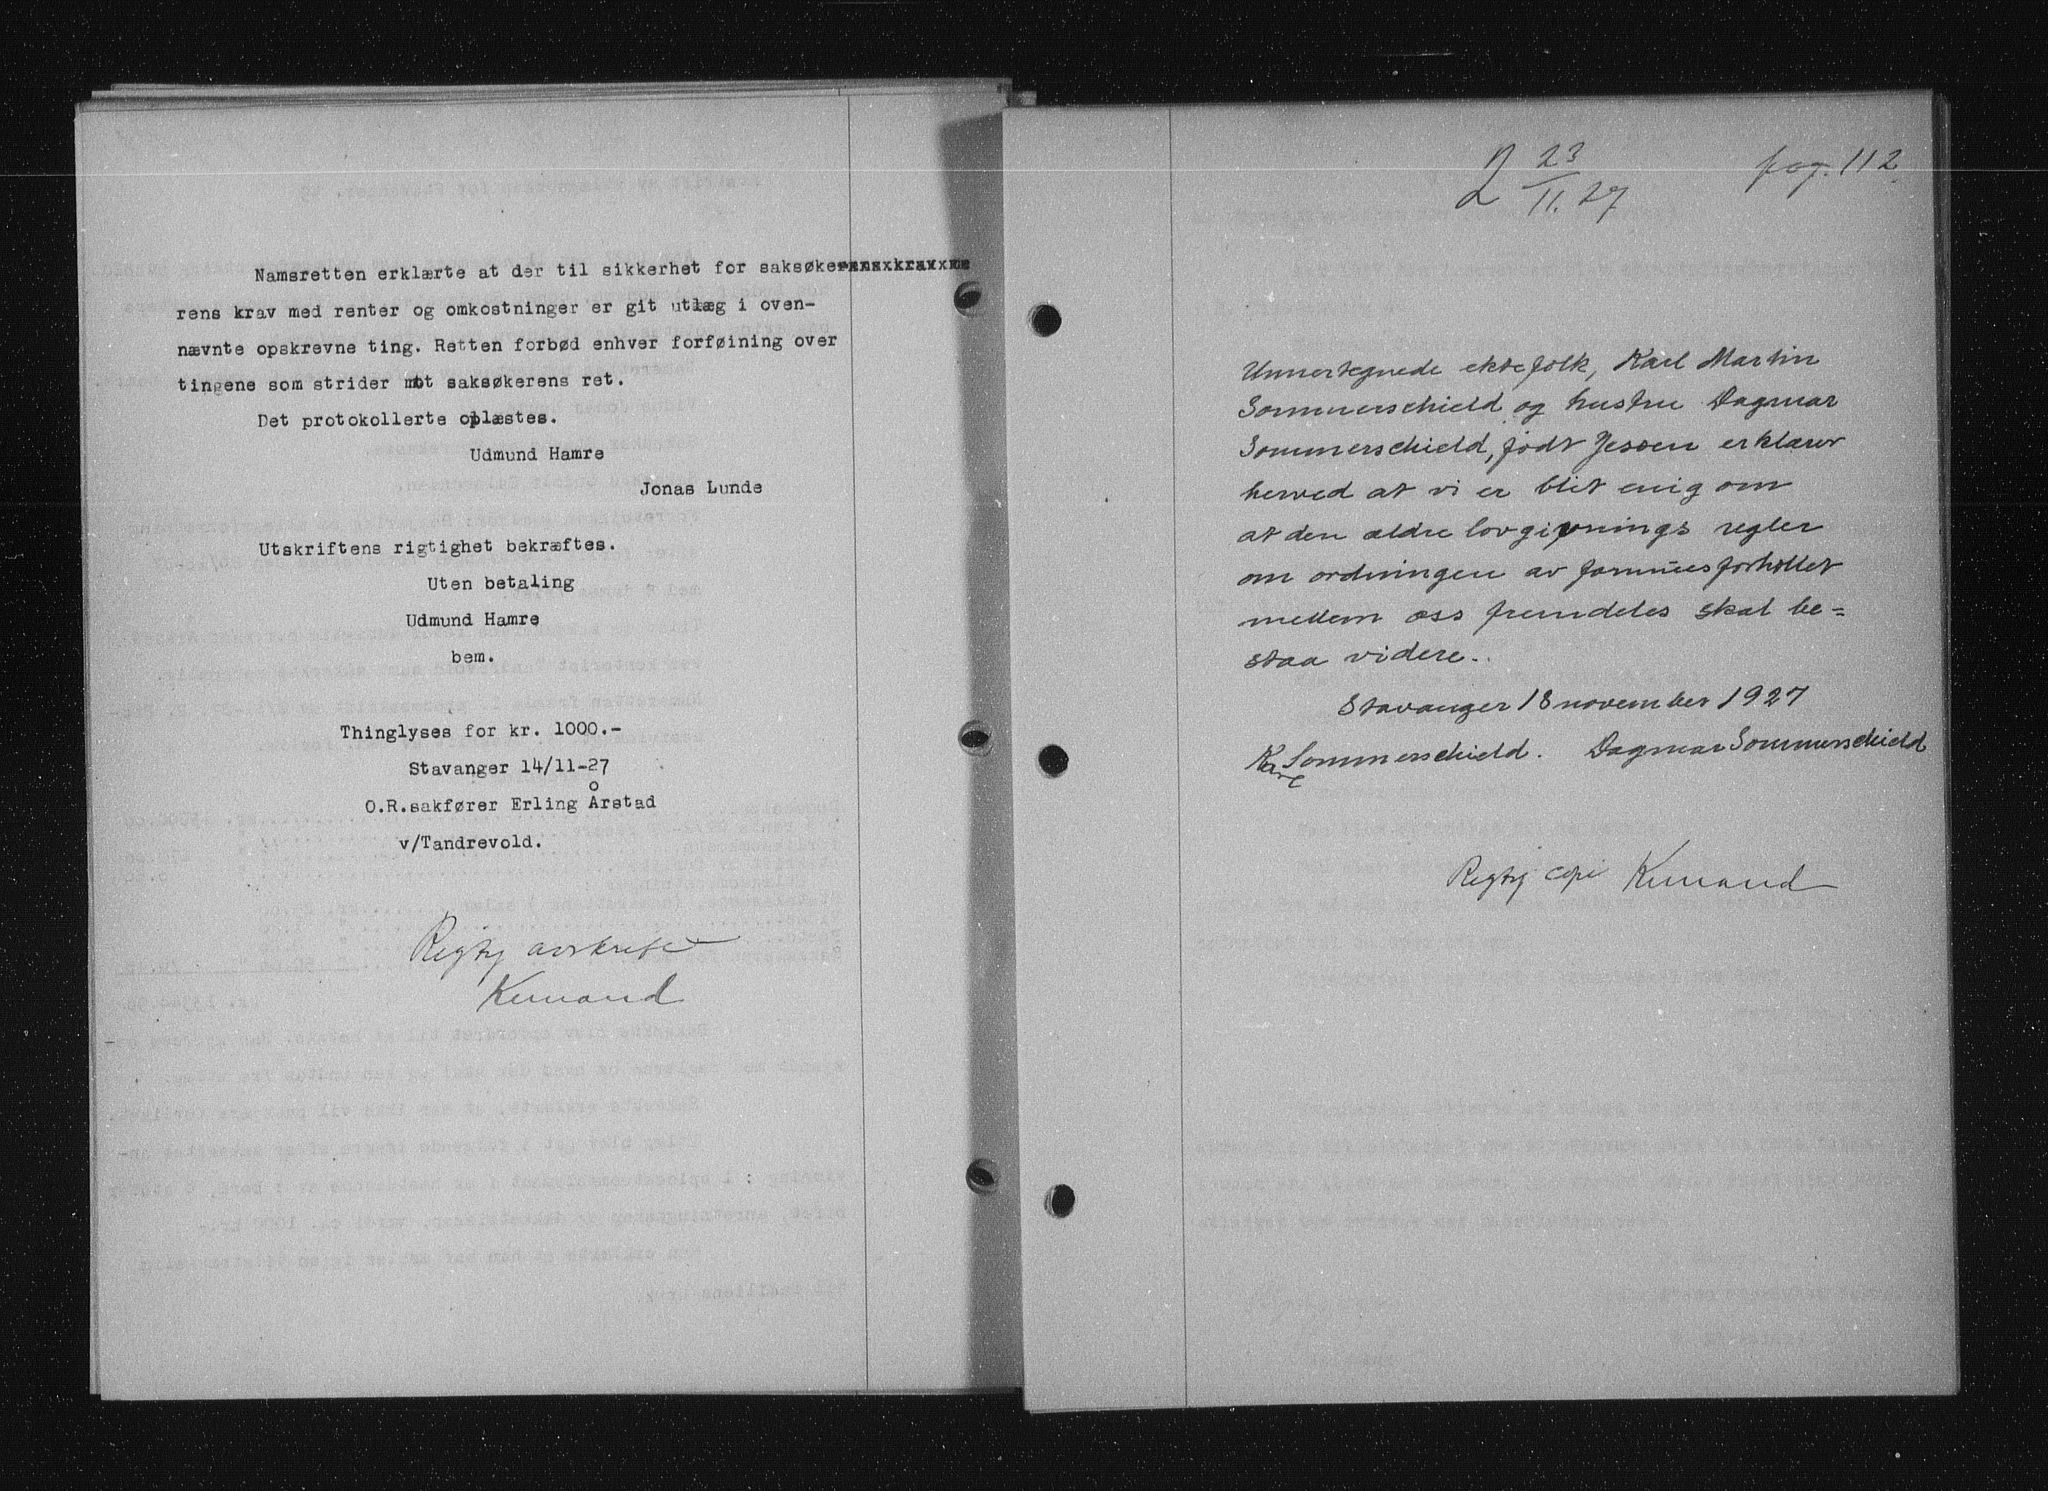 Namsretten erklærte at der til sikkerhet for saksøke
rens krav med renter og omkostninger er git utlæg i oven-
nævnte opskrevne ting. Retten forbød enhver forføining over
tingene som strider mot saksøkerens ret.
Det protokollerte oplæstes.
Udmund Hamre
Jonas Lunde
Utskriftens rigtighet bekræftes.
Uten betaling
Udmund Hamre
bem.
Thinglyses for kr. 1000.-
Stavanger 14/11-27
O.R.sakfører Erling Årstad
v/Tandrevold.
Rigtig avskrift
23
11.27
pag. 112
Unnertegnede ektefolk, Karl Martin
Sommerschield og hustru Dagmar
Sommerschield, født Jessen erklærer
herved at vi er blit enig om
at den ældre lovgivnings regler
om ordningen av formuesforholdet
mellem oss fremdeles skal be=
staa videre..
Stavanger 18 november 1927
Karl Sommerschield. Dagmar Sommerschield
Rigtig copi